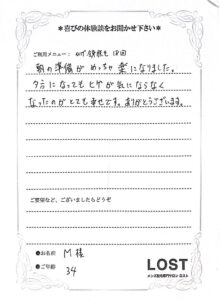 ＊喜びの体験談をお聞かせ下さい＊
ご利用メニュー： ひげ脱毛 18回
朝の準備がめっちゃ楽になりました。
夕方になってもヒゲが気にならなく
なったのがとても幸せです。ありがとうございます。
ご要望など、ございましたらどうぞ
●お名前 M様
●ご年齢 34
LOST
メンズ脱毛専門サロン ロスト